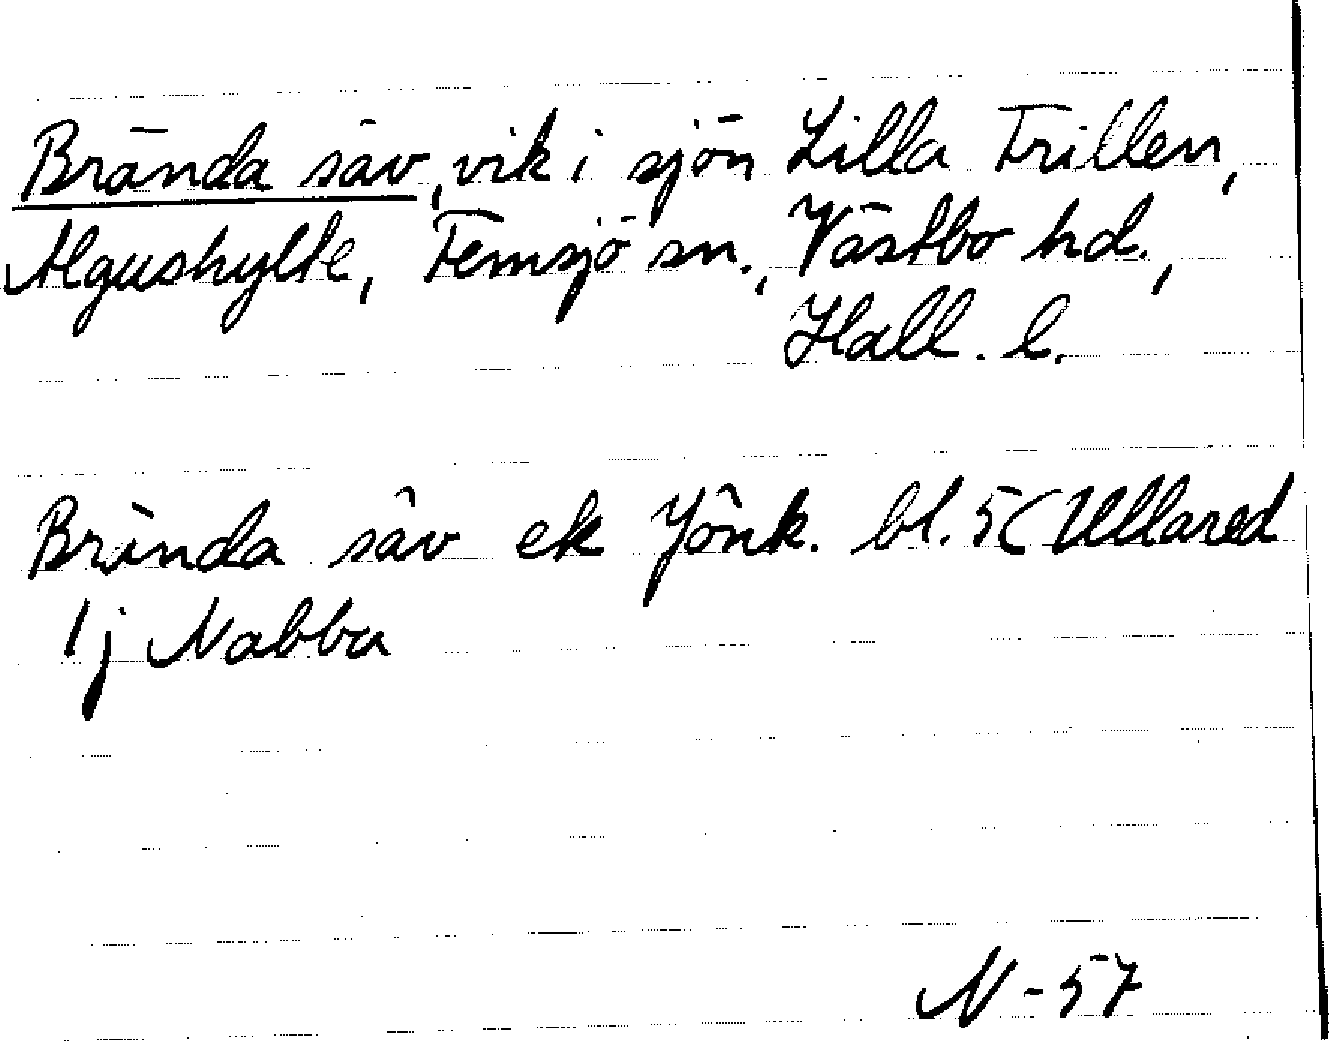 Brända säv, vik i sjön Lilla Trillen,
Algushylte, Femsjö sn., Västbo hd.,
Hall. l.
Brända säv ek Jönk. bl. 5 (Ullared
1j Nabba
N-57